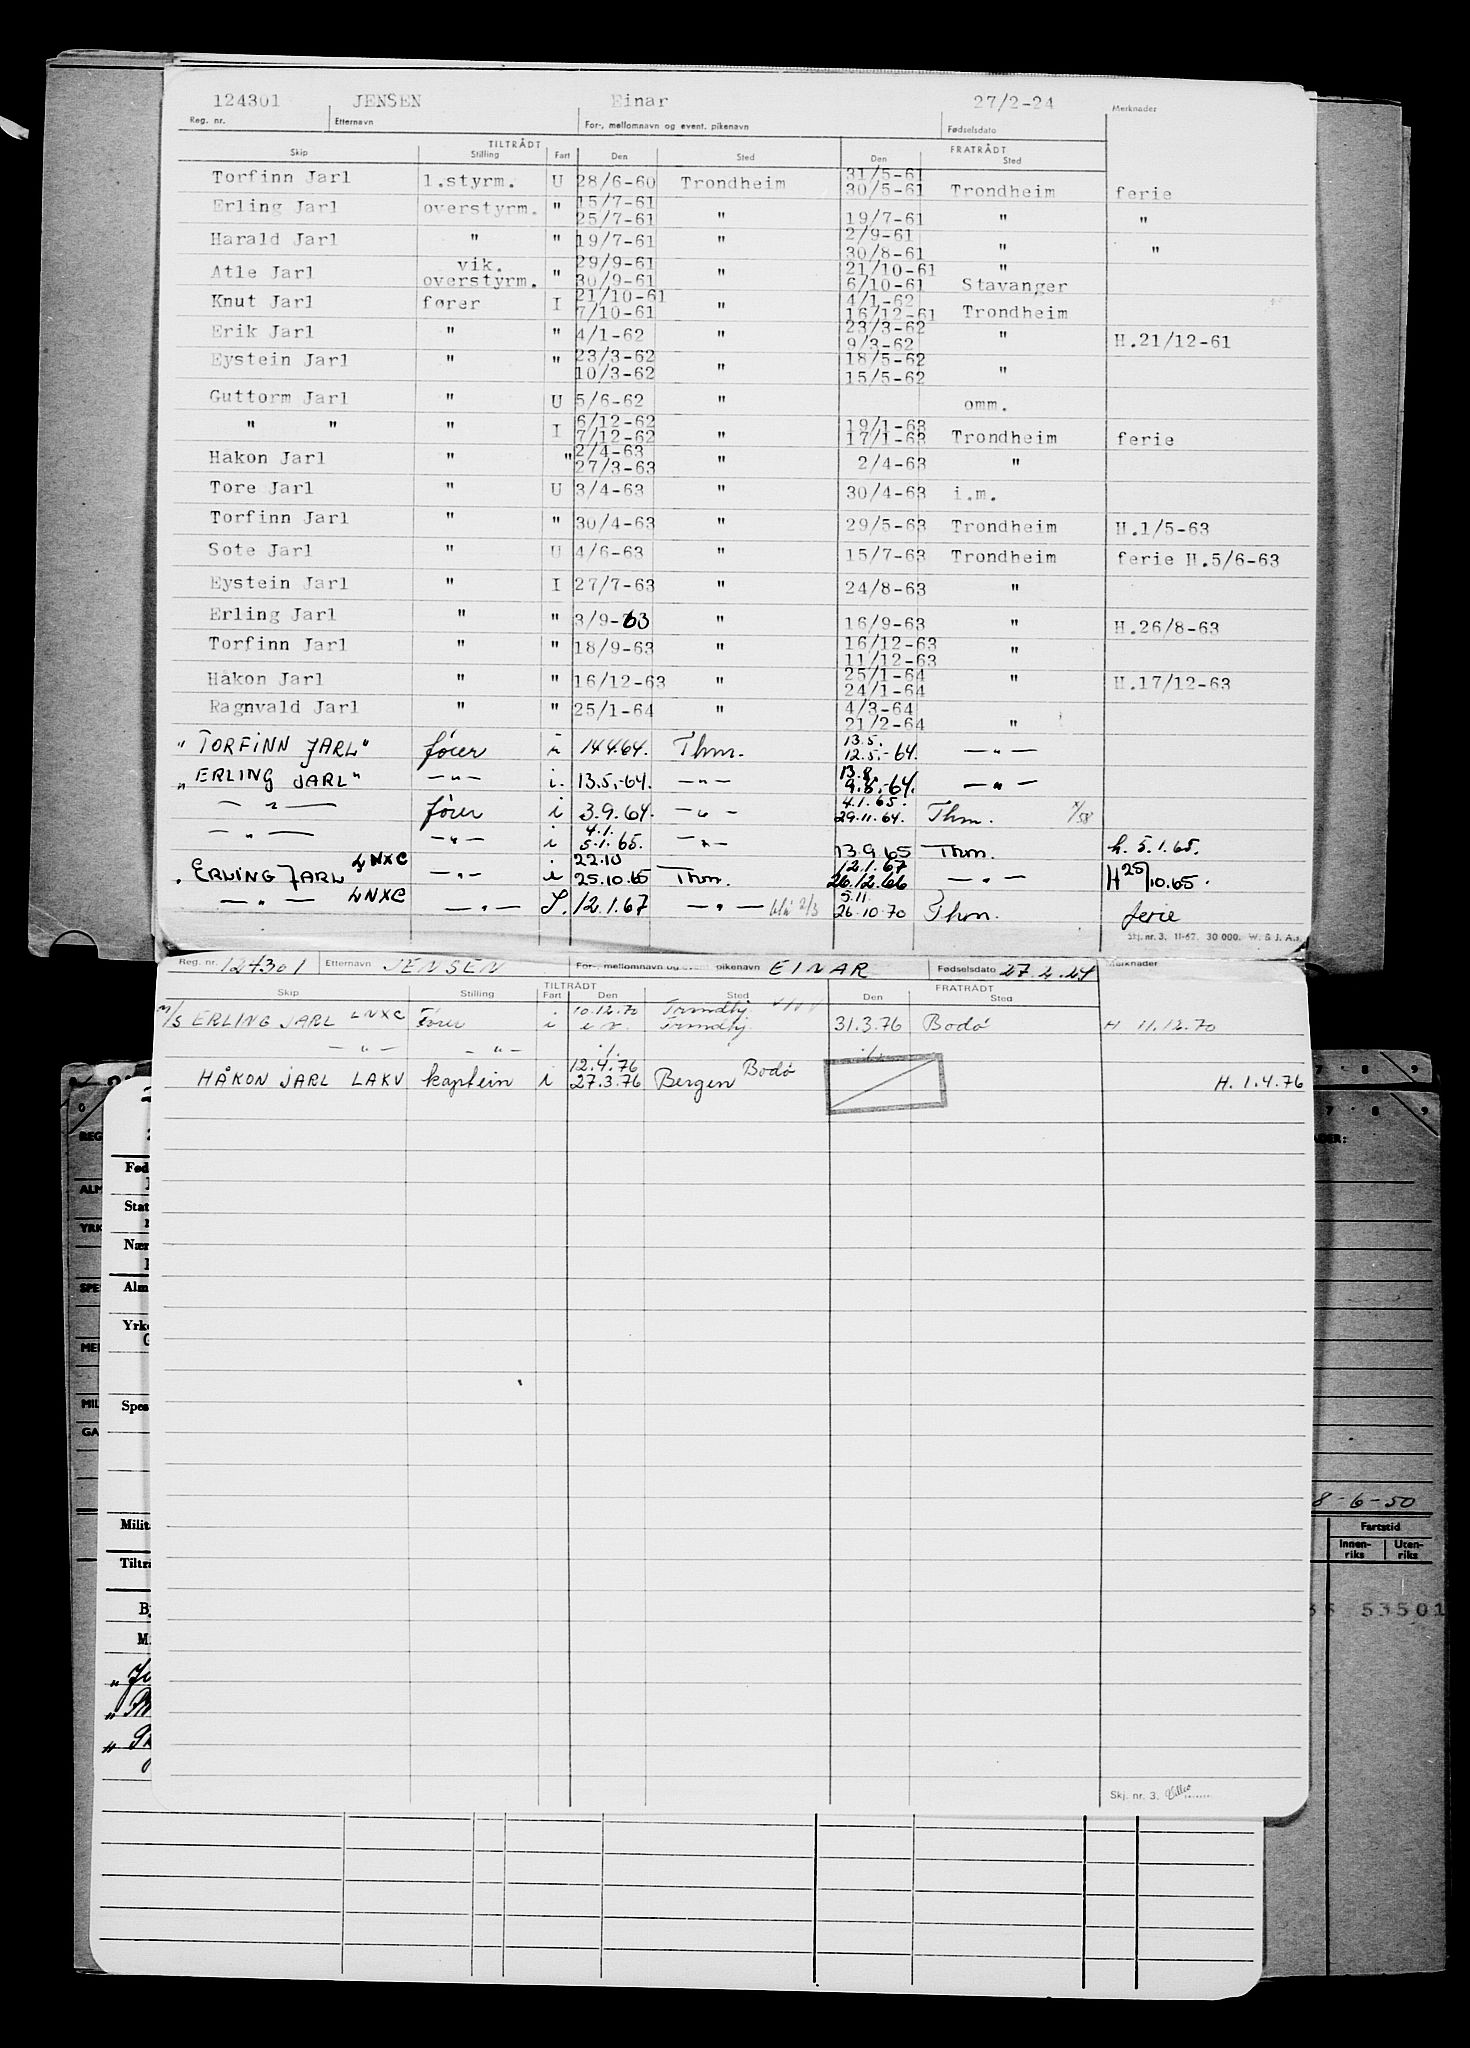 124301 JENSEN Einar 27/2-24 Merknader
Reg. nr. Etternavn For-, mellomnavn og event. pikenavn Fødselsdato
TILTRÅDT FRATRÅDT
Skip Stilling Fart Den Sted Den Sted
31/5-61
Torfinn Jarl 1.styrm. U 28/6-60 Trondheim 30/5-61 Trondheim ferie
15/7-61
Erling Jarl overstyrm. " 25/7-61 " 19/7-61 " "
2/9-61
Harald Jarl " " 19/7-61 " 30/8-61 " "
vik. 29/9-61 21/10-61 "
Atle Jarl overstyrm. " 30/9-61 " 6/10-61 Stavanger
21/10-61 4/1-62
Knut Jarl fører I 7/10-61 " 16/12-61 Trondheim
23/3-62
Erik Jarl " " 4/1-62 " 9/3-62 " H.21/12-61
23/3-62 18/5-62
Eystein Jarl " " 10/3-62 " 15/5-62 "
Guttorm Jarl " U 5/6-62 " omm.
6/12-62 19/1-63
" " " I 7/12-62 " 17/1-63 Trondheim ferie
2/4-63
Håkon Jarl " " 27/3-63 " 2/4-63 "
Tore Jarl " U 3/4-63 " 30/4-63 i.m.
Torfinn Jarl " " 30/4-63 " 29/5-63 Trondheim H.1/5-63
Sote Jarl " U 4/6-63 " 15/7-63 Trondheim ferie H.5/6-63
Eystein Jarl " I 27/7-63 " 24/8-63 "
Erling Jarl " " 3/9-63 " 16/9-63 " H.26/8-63
16/12-63
Torfinn Jarl " " 18/9-63 " 11/12-63 "
25/1-64
Håkon Jarl " " 16/12-63 " 24/1-64 " H.17/12-63
4/3-64
Ragnvald Jarl " " 25/1-64 " 21/2-64 "
13.5.
" TORFINN JARL" fører i 14.4.64. Thm. 12.5.-64. — " —
13.8.
" ERLING JARL" — " — i. 13.5.-64. — " — 9.8.-64. — " —
4.1.65.
— " — fører i 3.9.64. — " — 29.11.64. Thm.
4.1.
— " — — " — i 5.1.65. — " — 13.9.65 Thm. h. 5.1.65.
22.10 12.1.67
ERLING JARL LNXC — " — i 25.10.65 Thm. 26.12.66 — " — H 25/10.65.
5.11.
— " — LNXC — " — I. 12.1.67 — " — 26.10.70 Thm. ferie
Skj. nr. 3. 11-62. 30 000. W. & J. A.s.
Reg. nr. 124301 Etternavn JENSEN For-, mellomnavn og event. pikenavn EINAR Fødselsdato 27.2.24 Merknader
TILTRÅDT FRATRÅDT
Skip Stilling Fart Den Sted Den Sted
10.12.70 Trondhj.
M/S ERLING JARL LNXC fører i Trondhj. 31.3.76 Bodø H 11.12.70
— " — — " —
12.4.76 Bodø
HÅKON JARL LAKV kaptein i 27.3.76 Bergen H. 1.4.76
Skj. nr. 3.
7 · 8 · 9
7 · 8 · 9
REG
Fød
ALM
Stat
YRK
Nær
SPE
Alm
Yrk
MEI
MIL
Spes
GA
8-6-50
Milit
Fartstid
Innenriks Utenriks
Tiltr
53501